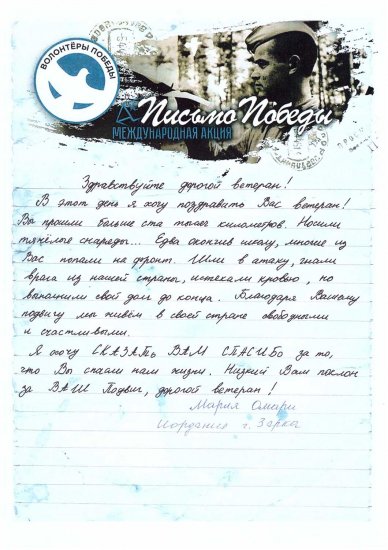 ВОЛОНТЁРЫ ПОБЕДЫ
Письмо Победы
МЕЖДУНАРОДНАЯ АКЦИЯ
Здравствуйте дорогой ветеран!
В этот день я хочу поздравить Вас ветеран!
Вы прошли больше ста тысяч километров. Носили
тяжёлые снаряды... Едва окончив школу, многие из
Вас попали на фронт. Шли в атаку, гнали
врага из нашей страны, истекали кровью, но
выполнили свой долг до конца. Благодаря Вашему
подвигу мы живём в своей стране свободными
и счастливыми.
Я хочу СКАЗАТЬ ВАМ СПАСИБО за то,
что Вы спасли нам жизни. Низкий Вам поклон
за ВАШ Подвиг, дорогой ветеран!
Мария Омари
Иордания г. Зарка